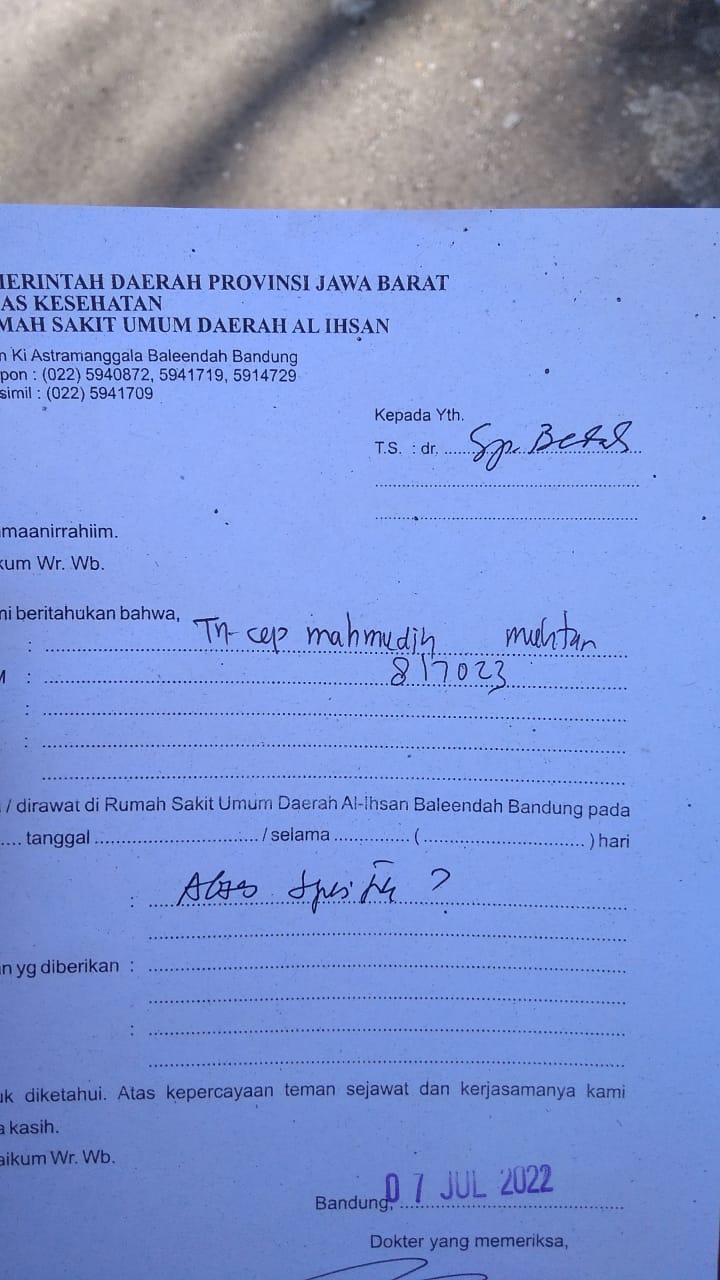 MERINTAH DAERAH PROVINSI JAWA BARAT
AS KESEHATAN
MAH SAKIT UMUM DAERAH AL IHSAN
n Ki Astramanggala Baleendah Bandung
pon : (022) 5940872, 5941719, 5914729
simil : (022) 5941709
Kepada Yth.
T.S. : dr. Sp. Bedah
maanirrahiim.
kum Wr. Wb.
ni beritahukan bahwa,
: Tn cep mahmudin
M : 817023
:
:
/ dirawat di Rumah Sakit Umum Daerah Al-Ihsan Baleendah Bandung pada
.... tanggal ............................. / selama .............. (.............................. ) hari
: Abses ?
n yg diberikan :
:
uk diketahui. Atas kepercayaan teman sejawat dan kerjasamanya kami
a kasih.
aikum Wr. Wb.
Bandung, 07 JUL 2022
Dokter yang memeriksa,